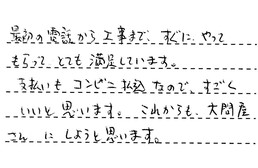 最初の電話から工事まで、すぐに やって
もらって とても 満足しています。
支払いも コンビニ払込 なので、すごく
いいと 思います。 これからも、大問屋
さん に しようと思います。